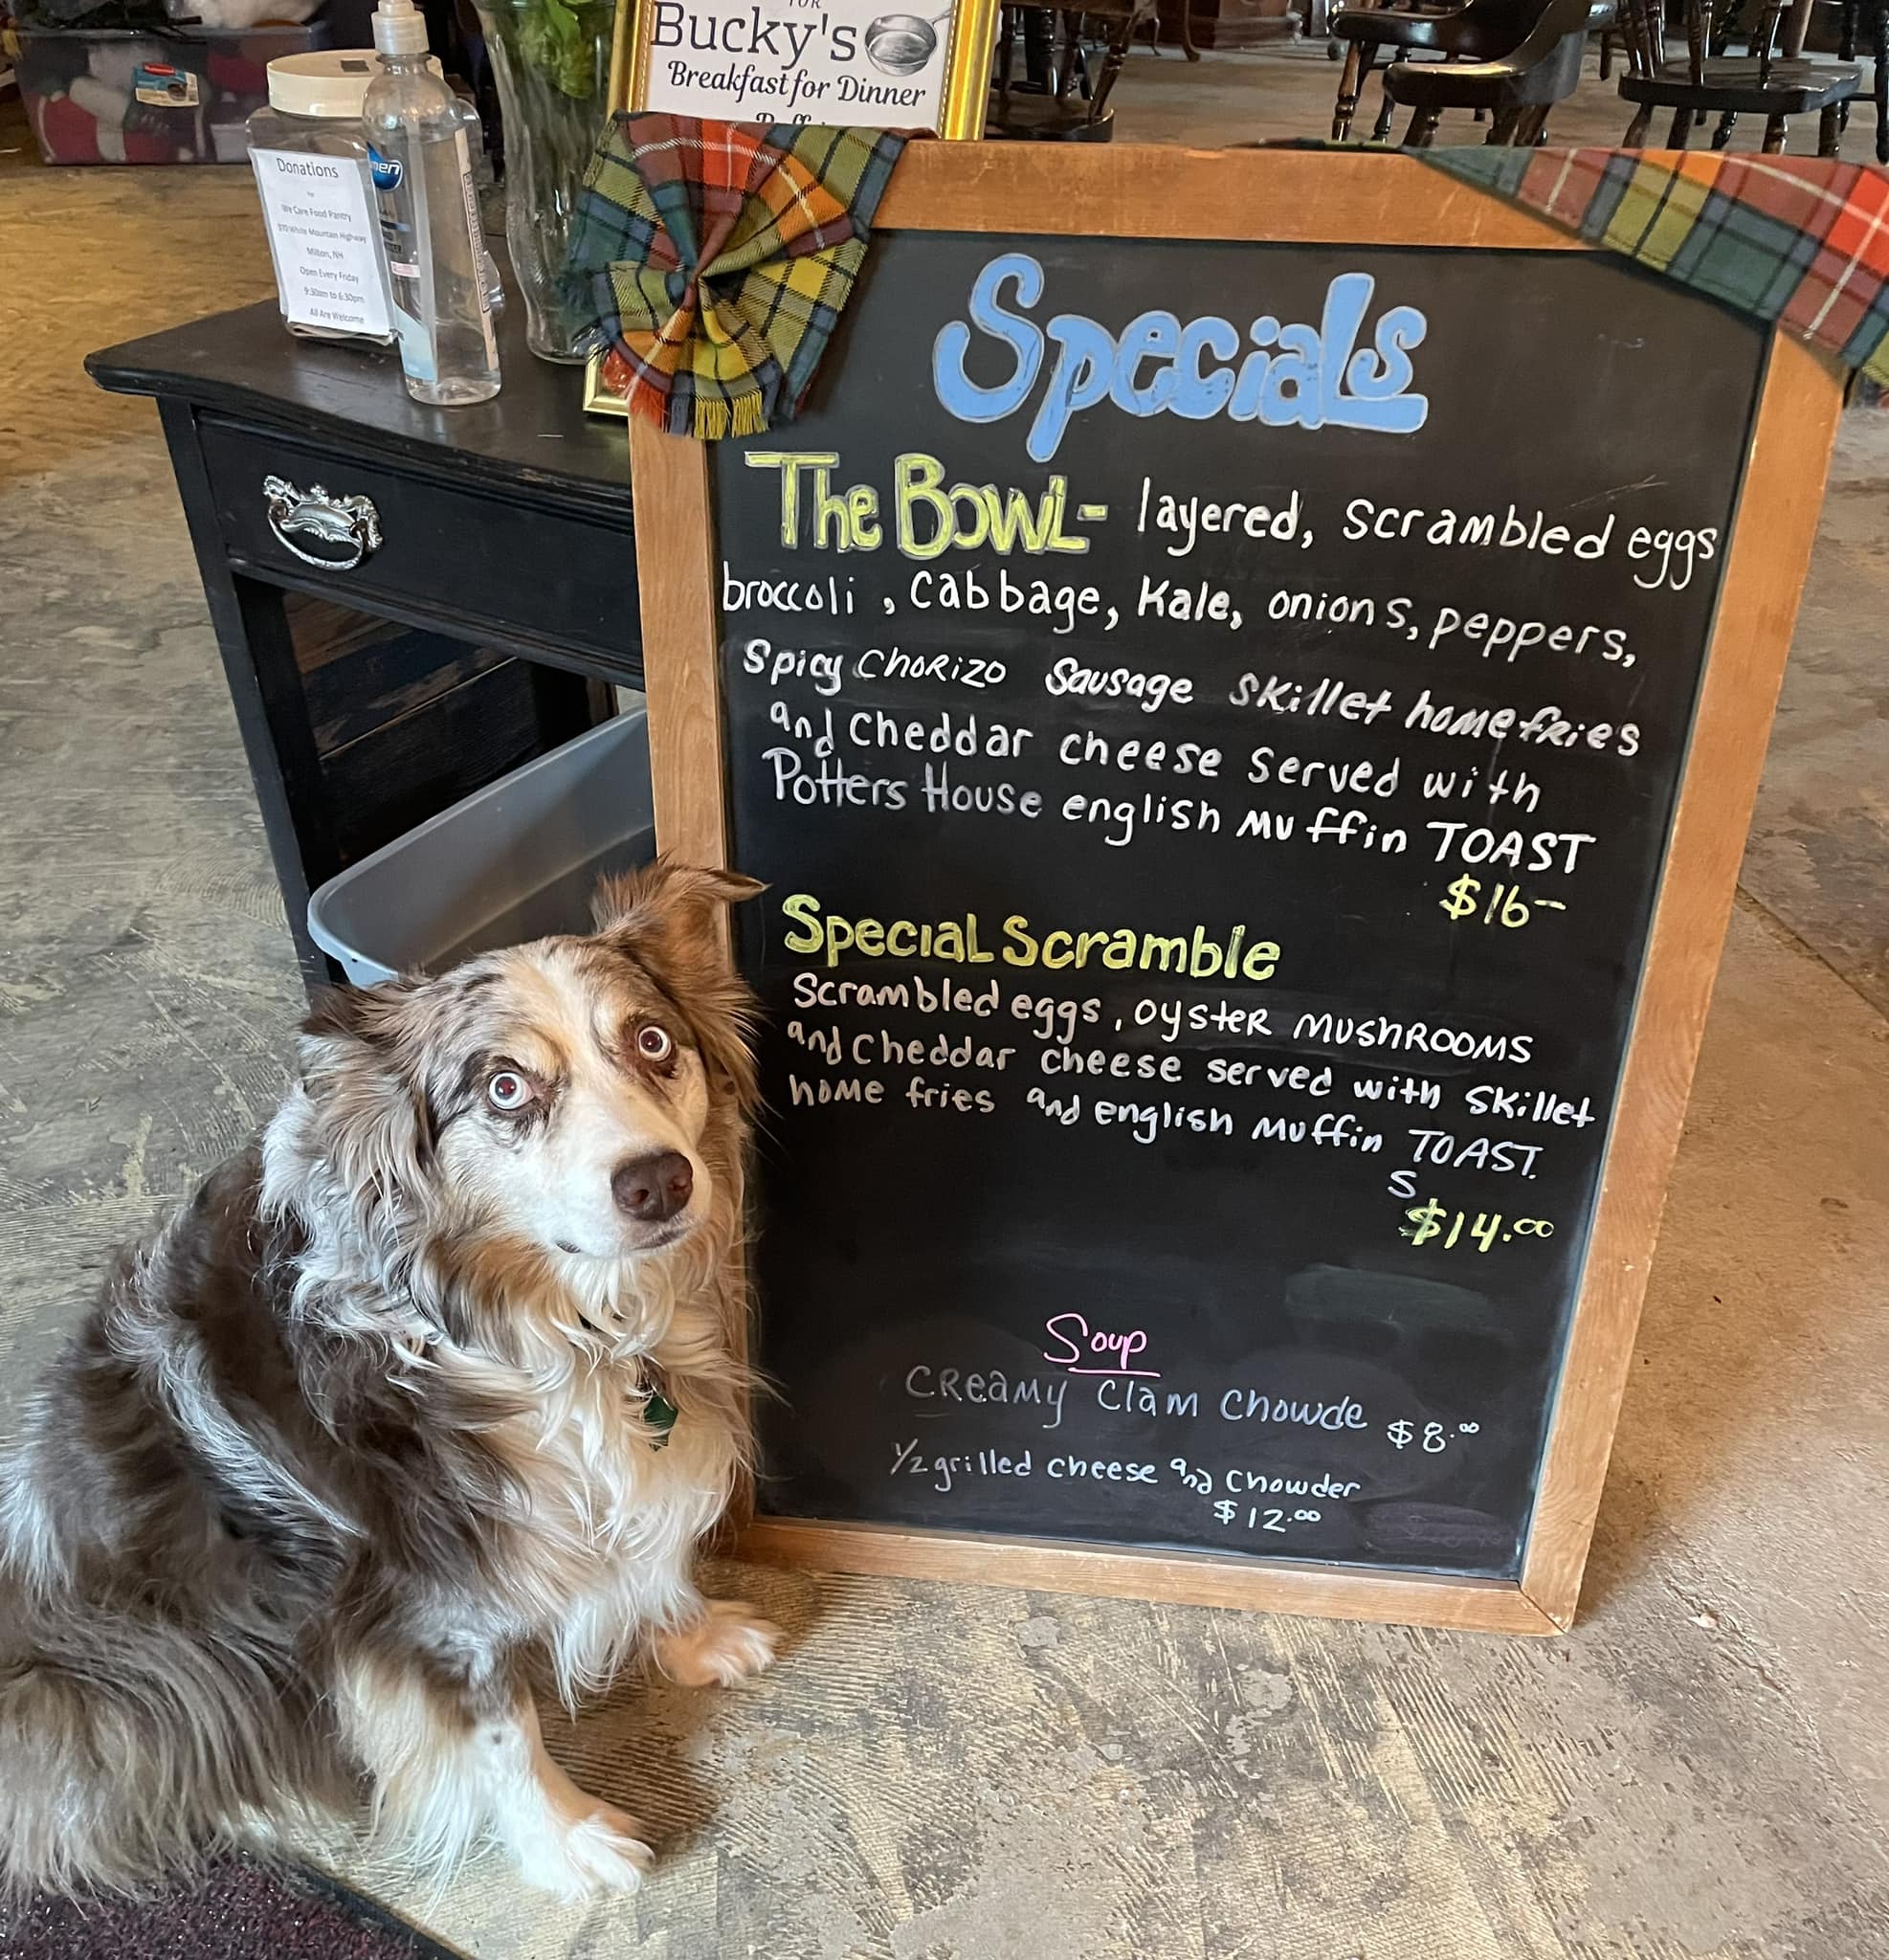 FOR
Bucky's
Breakfast for Dinner
Donations
for
We Care Food Pantry
White Mountain Highway
Milton, NH
Open Every Friday
9:30am to 6:30pm
All Are Welcome
Specials
The Bowl- layered, scrambled eggs
broccoli, cabbage, Kale, onions, peppers,
Spicy CHORIZO Sausage Skillet homefries
and Cheddar cheese served with
Potters House english Muffin TOAST
$16-
Special Scramble
Scrambled eggs, oyster MUSHROOMS
and Cheddar cheese served with skillet
home fries and english Muffin TOAST.
S
$14.00
Soup
CREAMY Clam Chowde $8.00
1/2 grilled cheese and chowder
$12.00